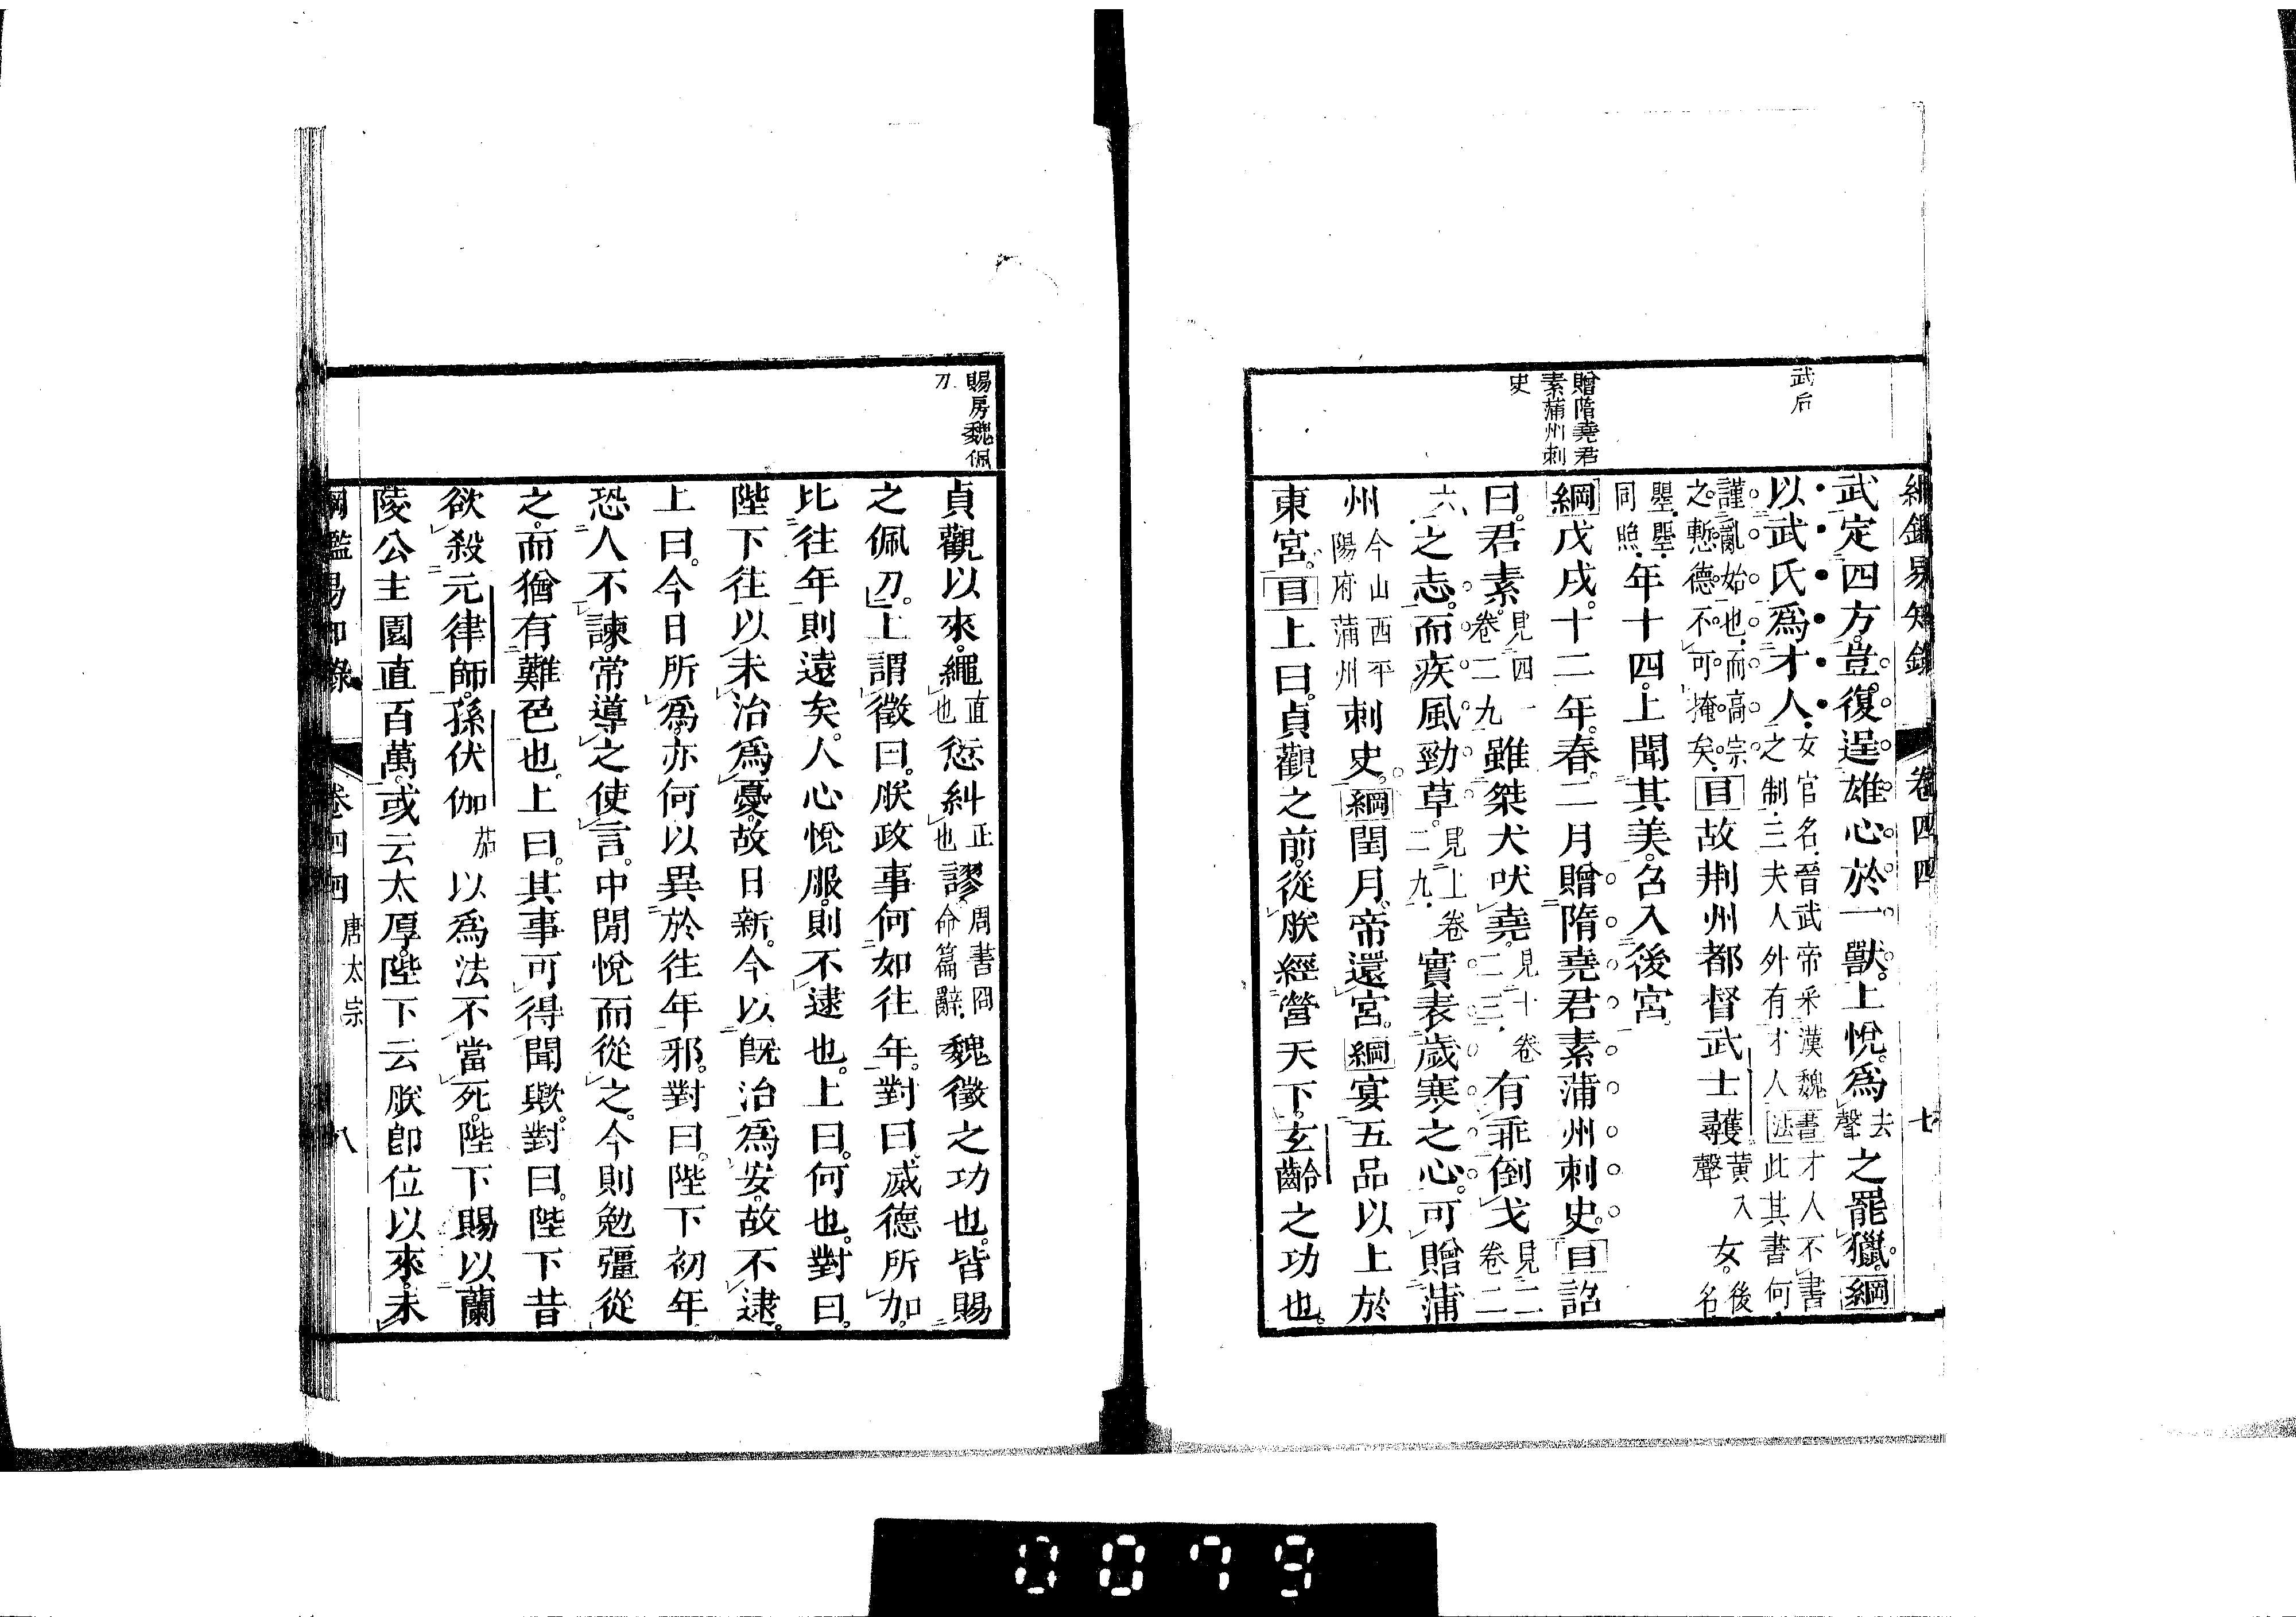 綱鑑易知錄 卷四四 七
武后
贈隋堯君
素蒲州刺
史
武定四方。豈復逞雄心於一獸。上悅。爲去聲之罷獵。綱
以武氏爲才人。女官名。晉武帝采漢魏之制。三夫人外有才人 書法 才人不書此其書何
謹亂始也。而高宗之慙德不可掩矣。目故荆州都督武士彠黄入聲女。後名
曌。曌同照。年十四。上聞其美。召入後宮
綱戊戌。十二年。春。二月贈隋堯君素蒲州刺史。目詔
曰。君素。見四一卷二九雖桀犬吠堯。見十卷二三。有乖倒戈見二卷二
六之志。而疾風勁草。見上卷二九。實表歲寒之心。可贈蒲
州今山西平陽府蒲州刺史。綱閏月。帝還宮。綱宴五品以上於
東宮。目上曰。貞觀之前。從朕經營天下。玄齡之功也。
賜房魏佩
刀
貞觀以來。繩直也愆糾正也謬。周書冏命篇辭。魏徵之功也。皆賜
之佩刀。上謂徵曰。朕政事何如往年。對曰。威德所加。
比往年則遠矣。人心悅服。則不逮也。上曰。何也。對曰。
陛下往以未治爲憂。故日新。今以既治爲安。故不逮。
上曰。今日所爲。亦何以異於往年邪。對曰。陛下初年
恐人不諫。常導之使言。中閒悅而從之。今則勉彊從
之。而猶有難色也。上曰。其事可得聞歟。對曰。陛下昔
欲殺元律師。孫伏伽茄以爲法不當死。陛下賜以蘭
陵公主園直百萬。或云太厚。陛下云朕卽位以來。未
綱鑑易知錄 卷四四 唐太宗 八
0079